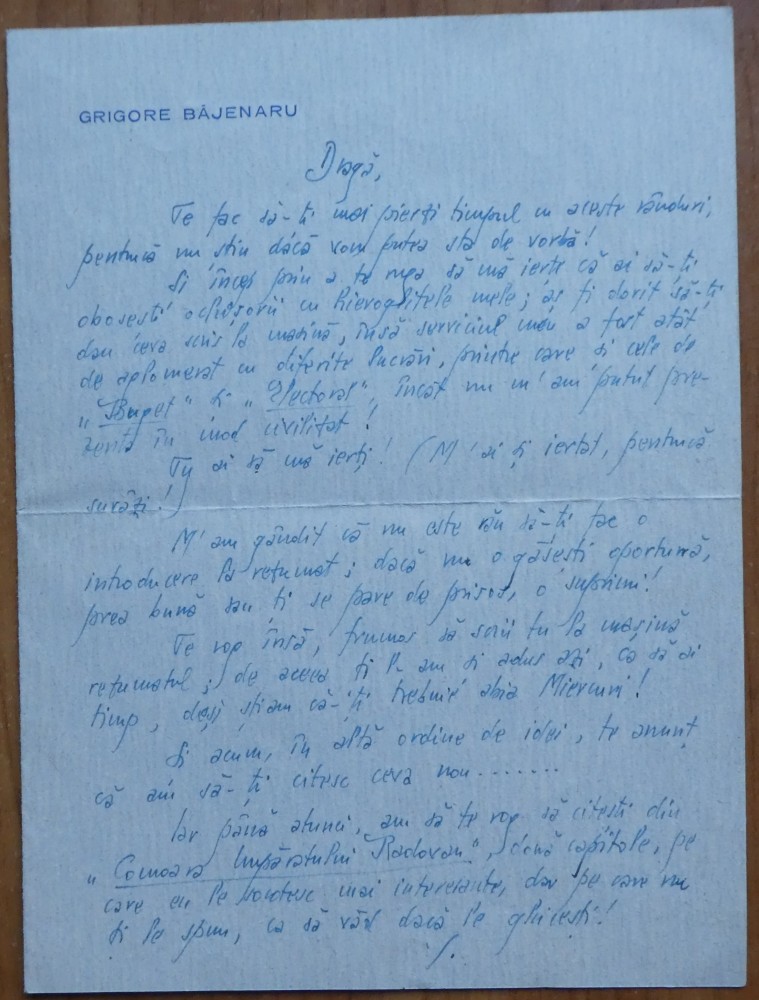 GRIGORE BĂJENARU
Dragă,
Te fac să-ți mai pierți timpul cu aceste rânduri,
pentrucă nu știu dácă vom putea sta de vorbă!
Și încep prin a te ruga să mă ierți că ai să-ți
obosești ochișorii cu hieroglifele mele; aș fi dorit să-ți
dau ceva scris la mașină, însă serviciul meu a fost atât
de aglomerat cu diferite lucrări, printre care și cele de
„Buget" și „Electoral", încât nu m'am putut pre-
zenta în mod civilizat!
Tu ai să mă ierți! (M'ai și iertat, pentrucă
surâzi!)
M'am gândit că nu este rău să-ți fac o
introducere la rezumat; dacă nu o găsești oportună,
prea bună sau ți se pare de prisos, o suprimi!
Te rog însă, frumos să scrii tu la mașină
rezumatul; de aceea ți l-am și adus azi, ca să ai
timp, deși știam că-ți trebuie abia Miercuri!
Și acum, în altă ordine de idei, te anunț
că am să-ți citesc ceva nou.......
Iar până atunci, am să te rog să citești din
„Comoara Impăratului Radovan", două capitole, pe
care eu le socotesc mai interesante, dar pe care nu
ți le spun, ca să văd dacă le ghicești!
./.